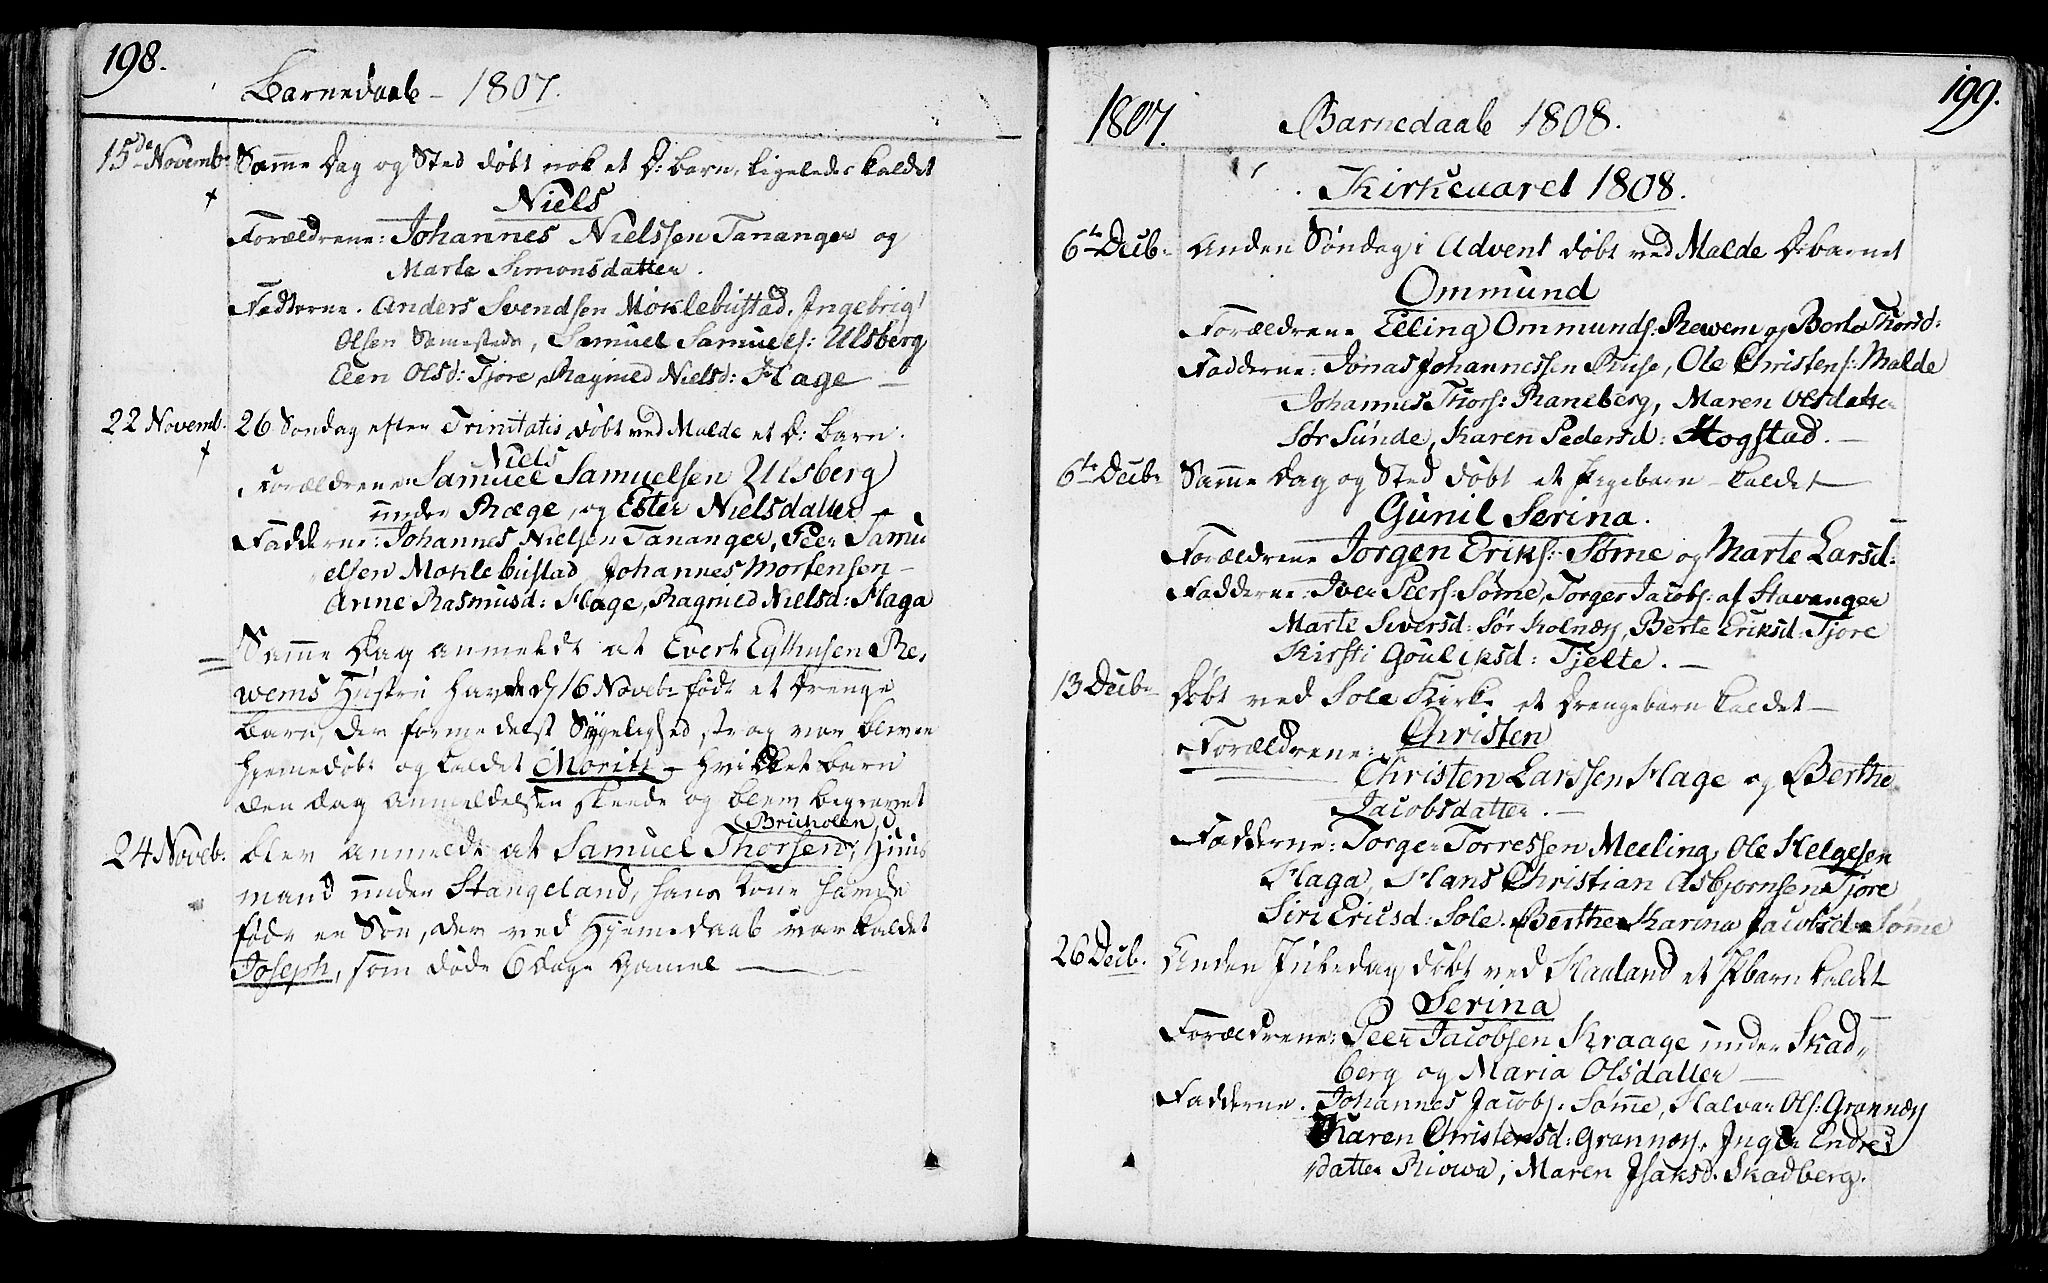 198.
Barnedaab - 1807.
15de Novemb: Samme Dag og Sted døbt nok et D: barn, ligeledes kaldet
Niels
Forældrene: Johannes Nielssen Tananger og
Marte Simonsdatter.
Fadderne. Anders Svendsen Møklebustad. Ingebrigt
Olsen Sammesteds, Samuel Samuels: Ulsberg
Elen Olsd: Tjore, Ragnild Nielsd: Hage —
22 Novemb. 26 Søndag efter Trinitatis døbt ved Malde et D: barn.
Niels
Forældrene Samuel Samuelsen Ulsberg
under Ræge, og Ester Nielsdatter
Fadderne: Johannes Nielsen Tananger, Peer Samu
elsen Moklebustad Johannes Mortensen —
Anne Rasmusd: Hage, Ragnild Nielsd: Haga
Samme Dag anmeldt at Evert Re,
wems Hustru havde d 16 Novebr født et Drenge
barn, der formedelst Sygelighed strax var bleven
hjemedøbt og kaldet Moritz - Hvilket barn
den dag Anmeldelsen skeede og blev begravet
24 Noveb: blev anmeldt at Samuel Thorsen, Huus
mand under Stangeland, hans Kone havde
født en Søn, der ved Hjemedaab var kaldet
Joseph, som døde 6 dage gamel —
199.
1807. Barnedaab 1808.
Kirkeuaret 1808.
6te Decbr Anden Søndag i Advent døbt ved Malde D: barnet
Ommund
Forældrene Elling Ommunds: Rewem og Borla Thorsd:
Fadderne: Jonas Johannessen Ruse, Ole Christens: Malde
Johannes Thors: Raneberg, Maren Olsdatter
Sør Sunde, Karen Pedersd: Hogstad. —
6te Decbr Samme Dag og Sted døbt et Pigebarn kaldet —
Gunil Serina.
Forældrene Jorgen Eriks: Sømme og Marte Larsd:
Fadderne: Iver Peers: Sømme, Torger Jacobs: af Stavanger
Marte Siversd: Sør Kolnæs, Berte Eriksd: Tjore
Kirsti Gouliksd: Tjelte. —
13 Decbr Døbt ved Sole Kirke et Drengebarn kaldet —
Christen
Forældrene:
Christen Larssen Hage og Berthe
Jacobsdatter. —
Fadderne: Torger Torressen Meeling, Ole Helgesen
Haga, Hans Christian Asbjørnsen Tjore
Siri Ericsd: Sole. Berthe Karina Jacobsd: Sømme
26 Decb. Anden Juledag døbt ved Haaland et P: barn kaldet
Serina
Forældrene: Peer Jacobsen Kraage under Skad,
berg og Maria Olsdatter —
Fadderne. Johannes Jacobs: Sømme, Halvar Ols: Grannæs
Karen Christensd: Grannæs, Inger Endres
datter Riowa, Maren Isaksd: Skadberg.